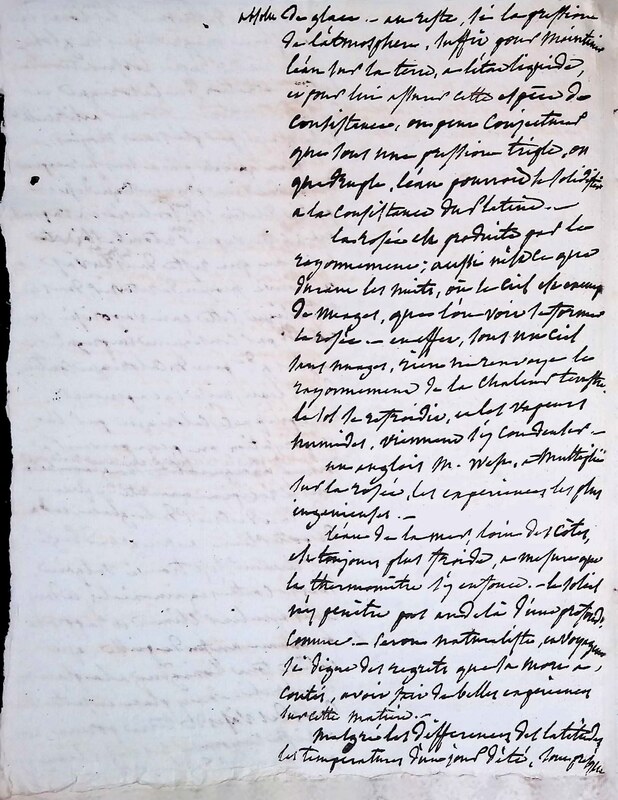 absolu de glace. – au reste, si la pression
de l'atmosphere, suffit pour maintenir
l'eau sur la terre, a l'état liquide,
et pour lui assurer cette espèce de
consistance, on peut conjecturer
que sous une pression triple, ou
quadruple, l'eau pourroit se solidifier
a la consistance du platine. –
la rosée est produite par le
rayonnement ; aussi n'est ce que
durant les nuits, où le ciel est exempt
de nuages, que l'on voit se former
la rosée. – en effet, sous un ciel
sans nuages, rien ne renvoye le
rayonnement de la chaleur terrestre
le sol se refroidit, et les vapeurs
humides, viennent s'y condenser. –
un anglois M. Wels, a multiplié
sur la rosée, les experiences les plus
ingenieuses. –
l'eau de la mer, loin des côtes,
est toujours plus froide, a mesure que
le thermomètre s'y enfonce. – le soleil
n'y penètre pas au delà d'une profondr
connue. – Peron naturaliste, et voyageur
si digne des regrets que sa mort a
coutés, avoit fait de belles expériences
sur cette matière. –
Malgré les differences des latitudes
les temperatures d'un jour d'été, sont